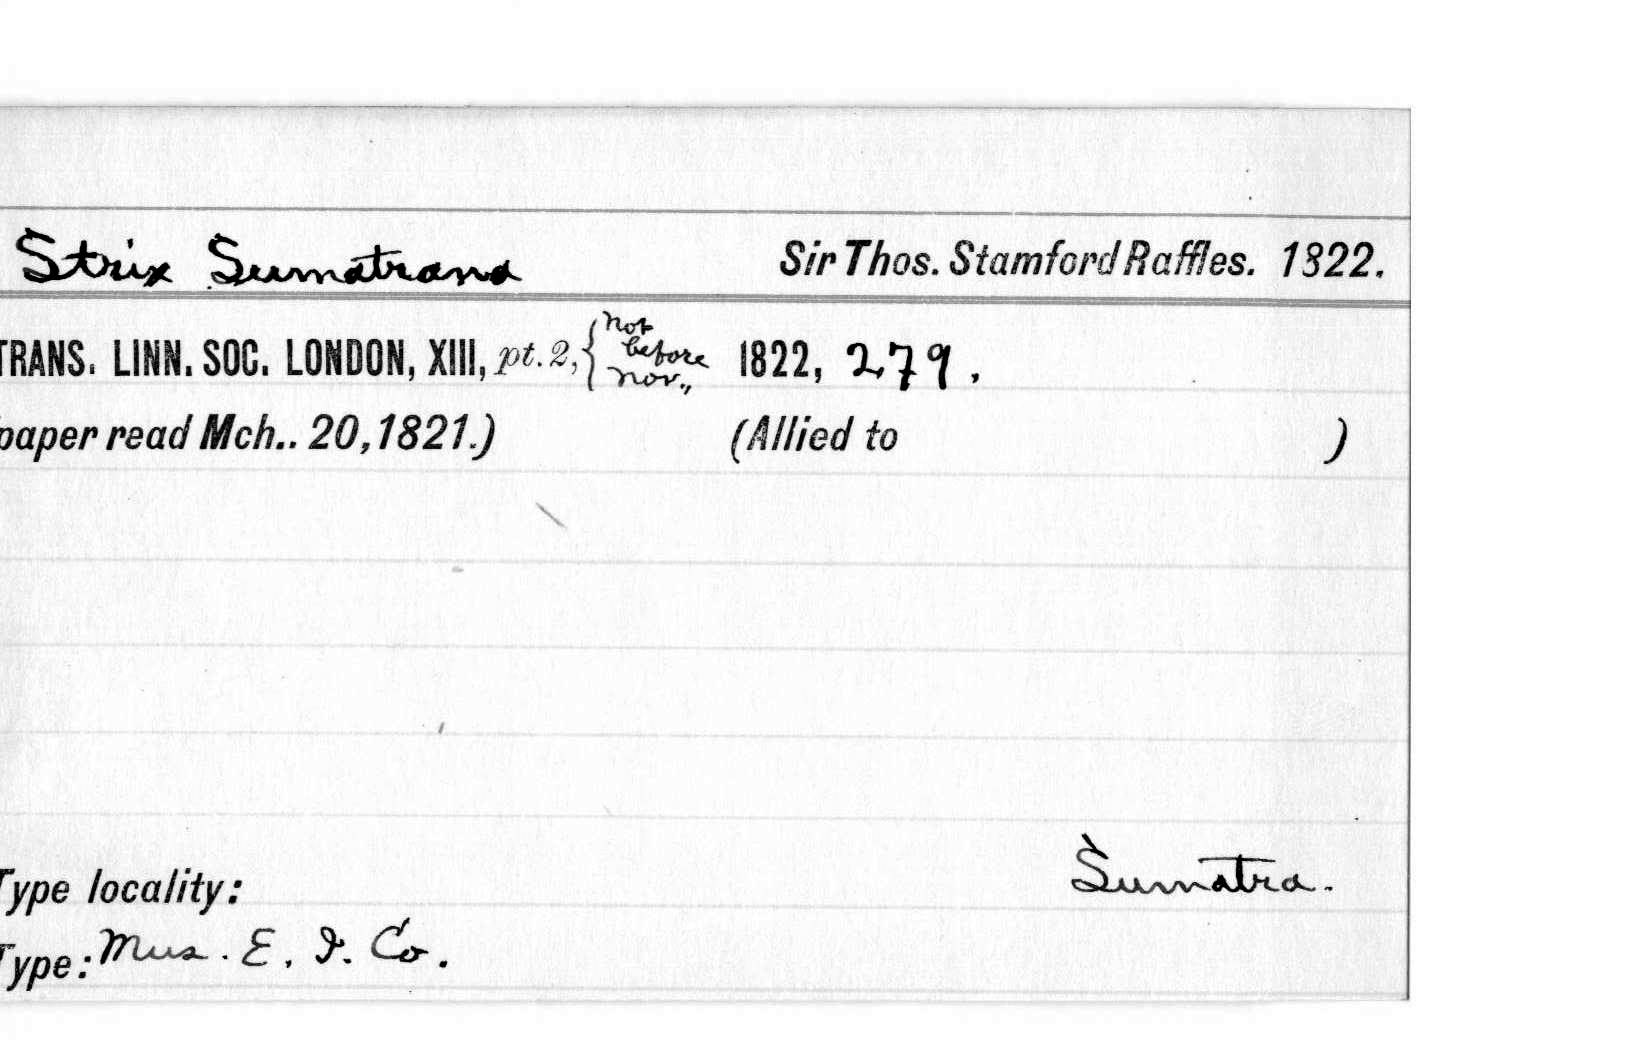 Strix Sumatrana Sir Thos. Stamford Raffles. 1822.
TRANS. LINN. SOC. LONDON, XIII, pt. 2, { not before nov., 1822, 279.
paper read Mch.. 20, 1821.) (Allied to )
Sumatra.
Type locality:
Type: Mus. E. I. Co.